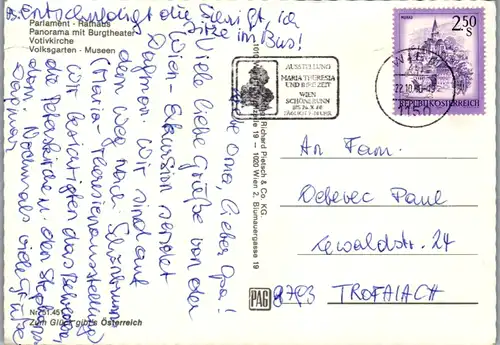 P.S. Entschuldigt die Schrift, ich
sitze im Bus!
Parlament - Rathaus
Panorama mit Burgtheater
Votivkirche
Volksgarten - Museen
Liebe Oma, lieber Opa!
Viele liebe Grüße von der
Wien-Exkursion sendet
Dagmar. Wir sind auf
dem Weg nach Schönbrunn
(Maria-Theresienausstellung)
Wir besichtigten das Belvedere,
die
Nochmals viele Grüße
Dagmar
Nr. 51.45
Zum Glück gibt's Österreich
Richard Pietsch & Co. KG.
1020 Wien 2, Blumauergasse 19
PAG
AUSSTELLUNG
MARIA THERESIA
UND IHRE ZEIT
WIEN
SCHÖNBRUNN
WIEN
22.10.80
1150
MURAU
2.50
S
REPUBLIK ÖSTERREICH
An Fam.
Debevec Paul
Rewaldstr. 24
8793 TROFAIACH